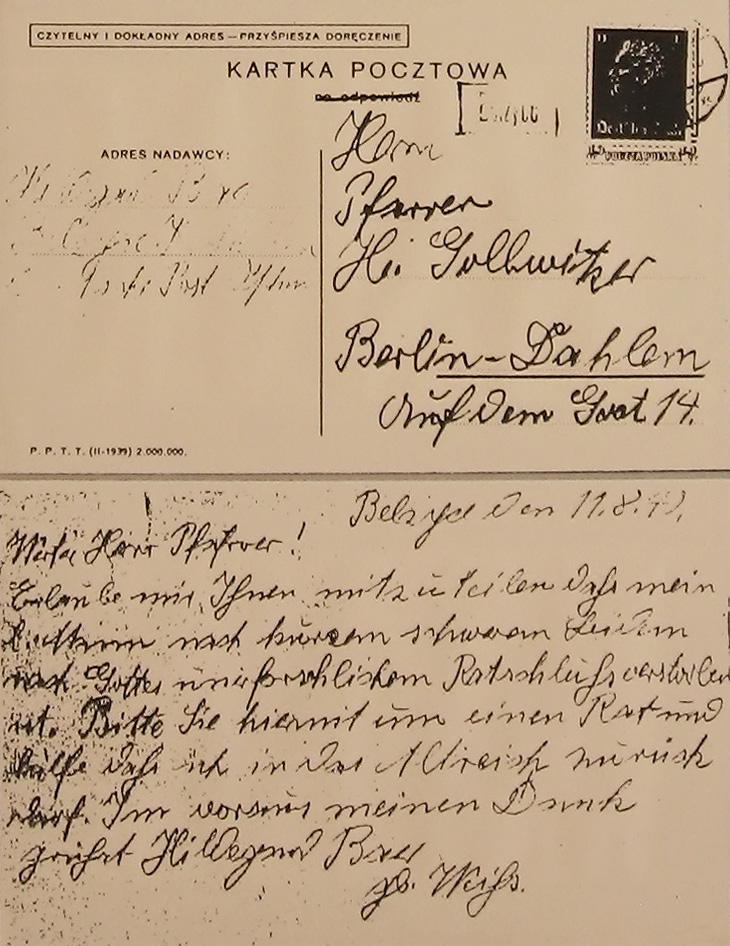 CZYTELNY I DOKŁADNY ADRES — PRZYŚPIESZA DORĘCZENIE
KARTKA POCZTOWA
na odpowiedź
ADRES NADAWCY:
Herrn
Pfarrer
H. Gollwitzer
Berlin-Dahlem
Auf dem Grat 14.
Post
P. P. T. T. (II-1939) 2.000.000.
POCZTA POLSKA
den 11.8.40.
Herr Pfarrer!
Erlaube mir Ihnen mitzuteilen daß mein
nach kurzem schweren Leiden
nach Gottes unerforschlichem Ratschluß verstorben
ist. Bitte Sie hiermit um einen Rat und
Hülfe daß ich in das Altreich zurück
darf. Im voraus meinen Dank
grüßt Hildegard
gb. Weiß.